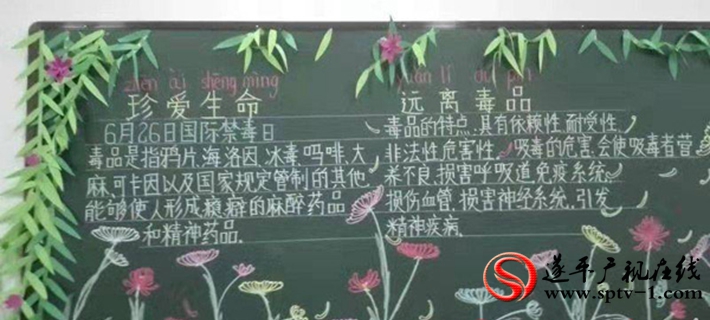 zhēn ài shēng mìng
珍爱生命
6月26日国际禁毒日
毒品是指鸦片.海洛因.冰毒.吗啡.大
麻.可卡因以及国家规定管制的其他
能够使人形成瘾癖的麻醉药品
和精神药品.
yuǎn lí dú pǐn
远离毒品
毒品的特点.具有依赖性.耐受性.
非法性.危害性.吸毒的危害.会使吸毒者营
养不良.损害呼吸道.免疫系统.
损伤血管.损害神经系统.引发
精神疾病.
遂平广视在线
www.sptv-1.com